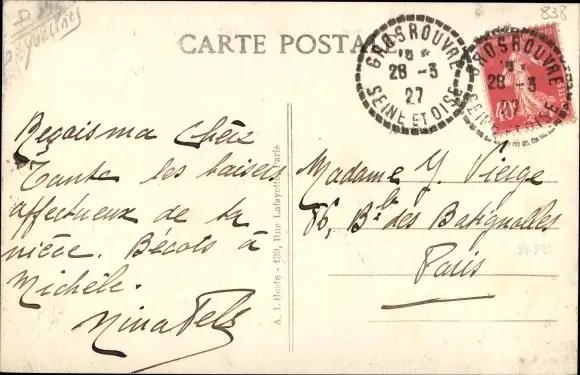 D
Yvelines
838
CARTE POSTALE
GROSROUVRE
28 - 3
27
SEINE ET OISE
GROSROUVRE
28 - 3
SEINE ET OISE
40c
Reçois ma chère
Tante les baisers
affectueux de ta
nièce. Bécots à
Michèle.
Nina
A. L'Hoste - 139, Rue Lafayette, Paris
Madame Y. Vierge
86, Bd des Batignolles
Paris